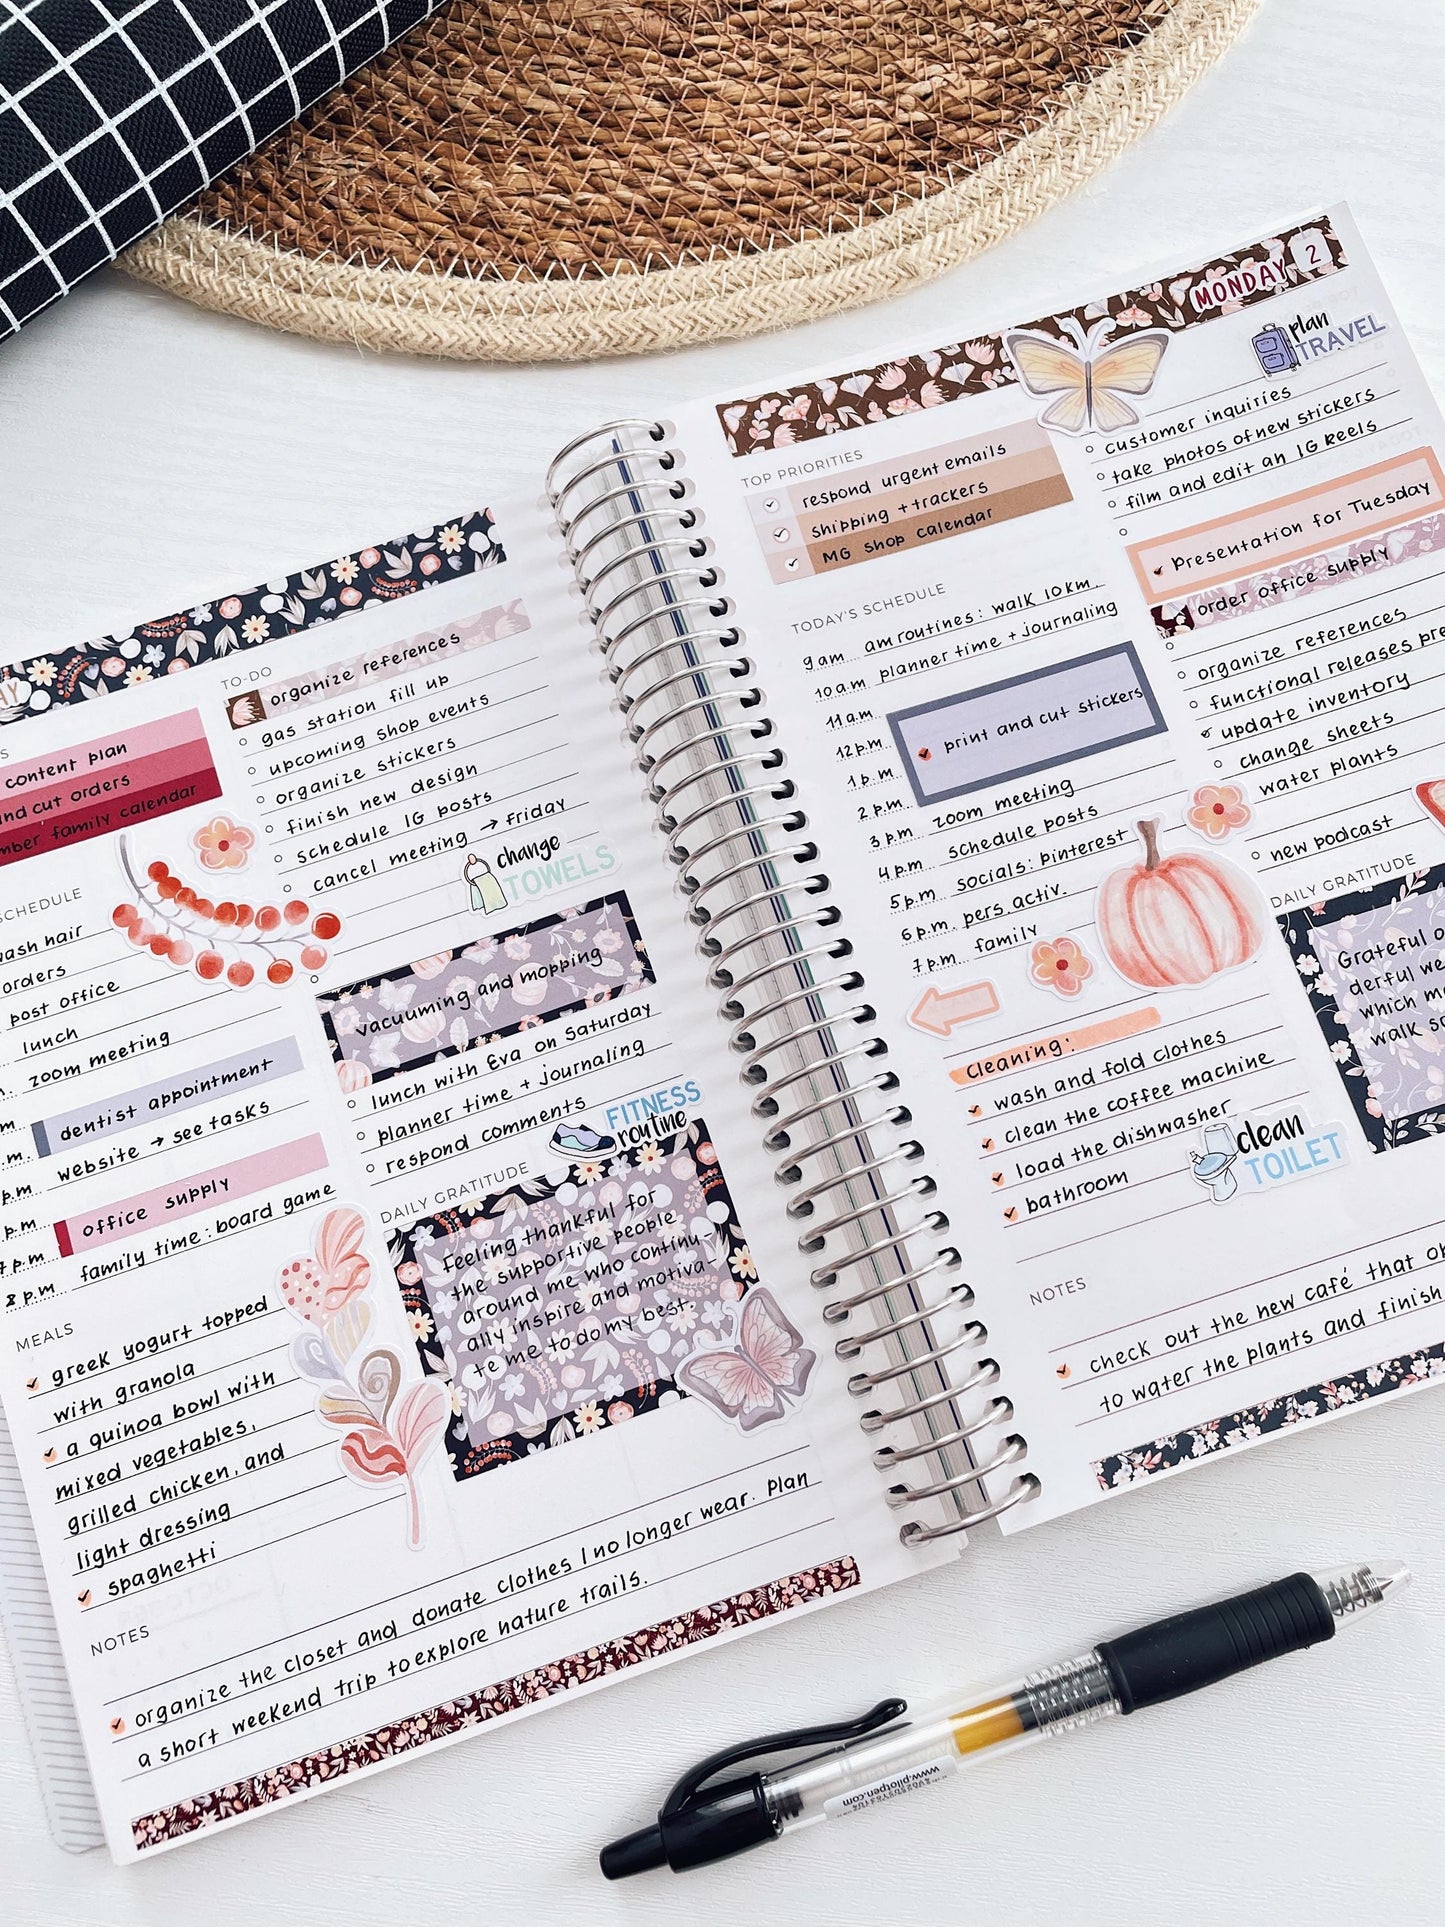 AY
S
content plan
nd cut orders
mber family calendar
SCHEDULE
ash hair
orders
post office
lunch
zoom meeting
dentist appointment
website → see tasks
office supply
family time: board game
8 p.m.
MEALS
greek yogurt topped
with granola
a quinoa bowl with
mixed vegetables,
grilled chicken, and
light dressing
spaghetti
TO-DO
organize references
gas station fill up
upcoming shop events
organize stickers
finish new design
schedule IG posts
cancel meeting → friday
change
TOWELS
vacuuming and mopping
lunch with Eva on Saturday
planner time + journaling
respond comments
FITNESS
routine
DAILY GRATITUDE
Feeling thankful for
the supportive people
around me who continu-
ally inspire and motiva-
te me to do my best.
NOTES
organize the closet and donate clothes I no longer wear. Plan
a short weekend trip to explore nature trails.
MONDAY 2
TOP PRIORITIES
respond urgent emails
shipping + trackers
MG shop calendar
TODAY'S SCHEDULE
9 am am routines: walk 10km.
10 a.m planner time + journaling
11 a.m
12 p.m print and cut stickers
1 p.m
2 p.m zoom meeting
3 p.m schedule posts
4 p.m socials: pinterest
5 p.m pers. activ.
6 p.m. family
7 p.m
cleaning:
wash and fold clothes
clean the coffee machine
load the dishwasher
bathroom
clean
TOILET
plan
TRAVEL
customer inquiries
take photos of new stickers
film and edit an IG Reels
Presentation for Tuesday
order office supply
organize references
functional releases pre
update inventory
change sheets
water plants
new podcast
DAILY GRATITUDE
Grateful o
derful we
which m
walk s
NOTES
check out the new café that o
to water the plants and finish
www.pilotpen.com